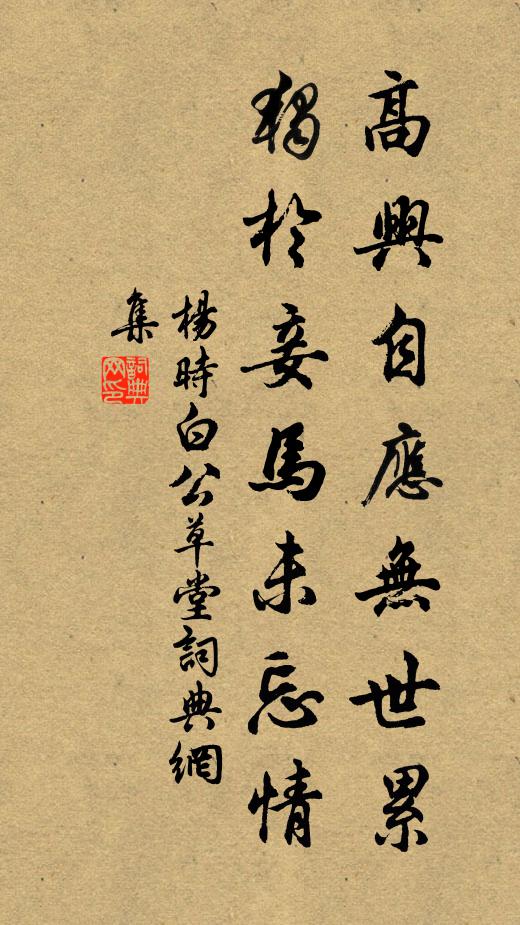 高興自應無世累
獨於妾馬未忘情
楊時白公草堂詞典網
集
詞典
网印